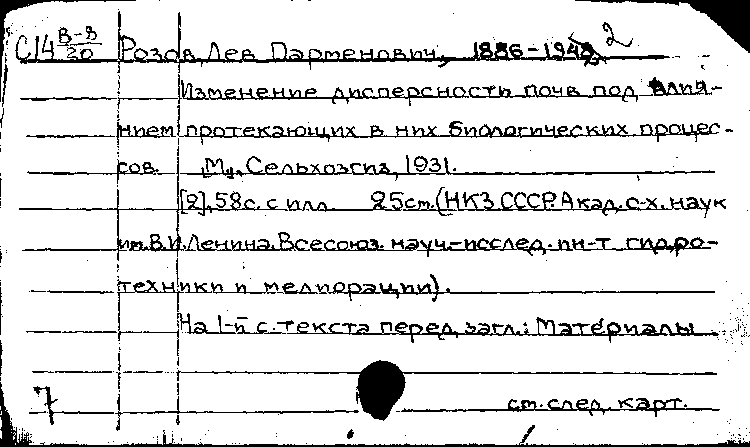 С14 В-8/20 Розов, Лев Парменович, 1886-1942
Изменение дисперсности почв под влия-
нием протекающих в них биологических процес-
сов. М., Сельхозгиз, 1931.
[2], 58с. с илл. 25см. (НКЗ СССР. Акад. с-х. наук
им. В.И. Ленина. Всесоюз. науч.-исслед. ин-т гидро-
техники и мелиорации).
На 1-й с. текста перед загл.: Материалы
7 см. след. карт.